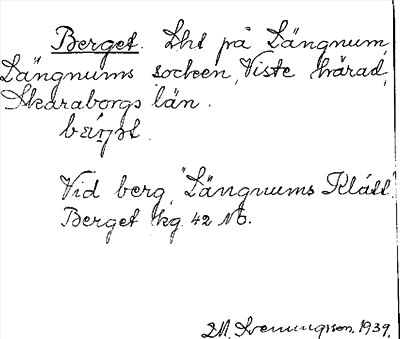 Berget. Lht på Längnum,
Längnums socken, Viste härad,
Skaraborgs län.
Vid berg, "Längnums Klätt".
Berget kg. 42 NO.
M. Svenungsson. 1939.